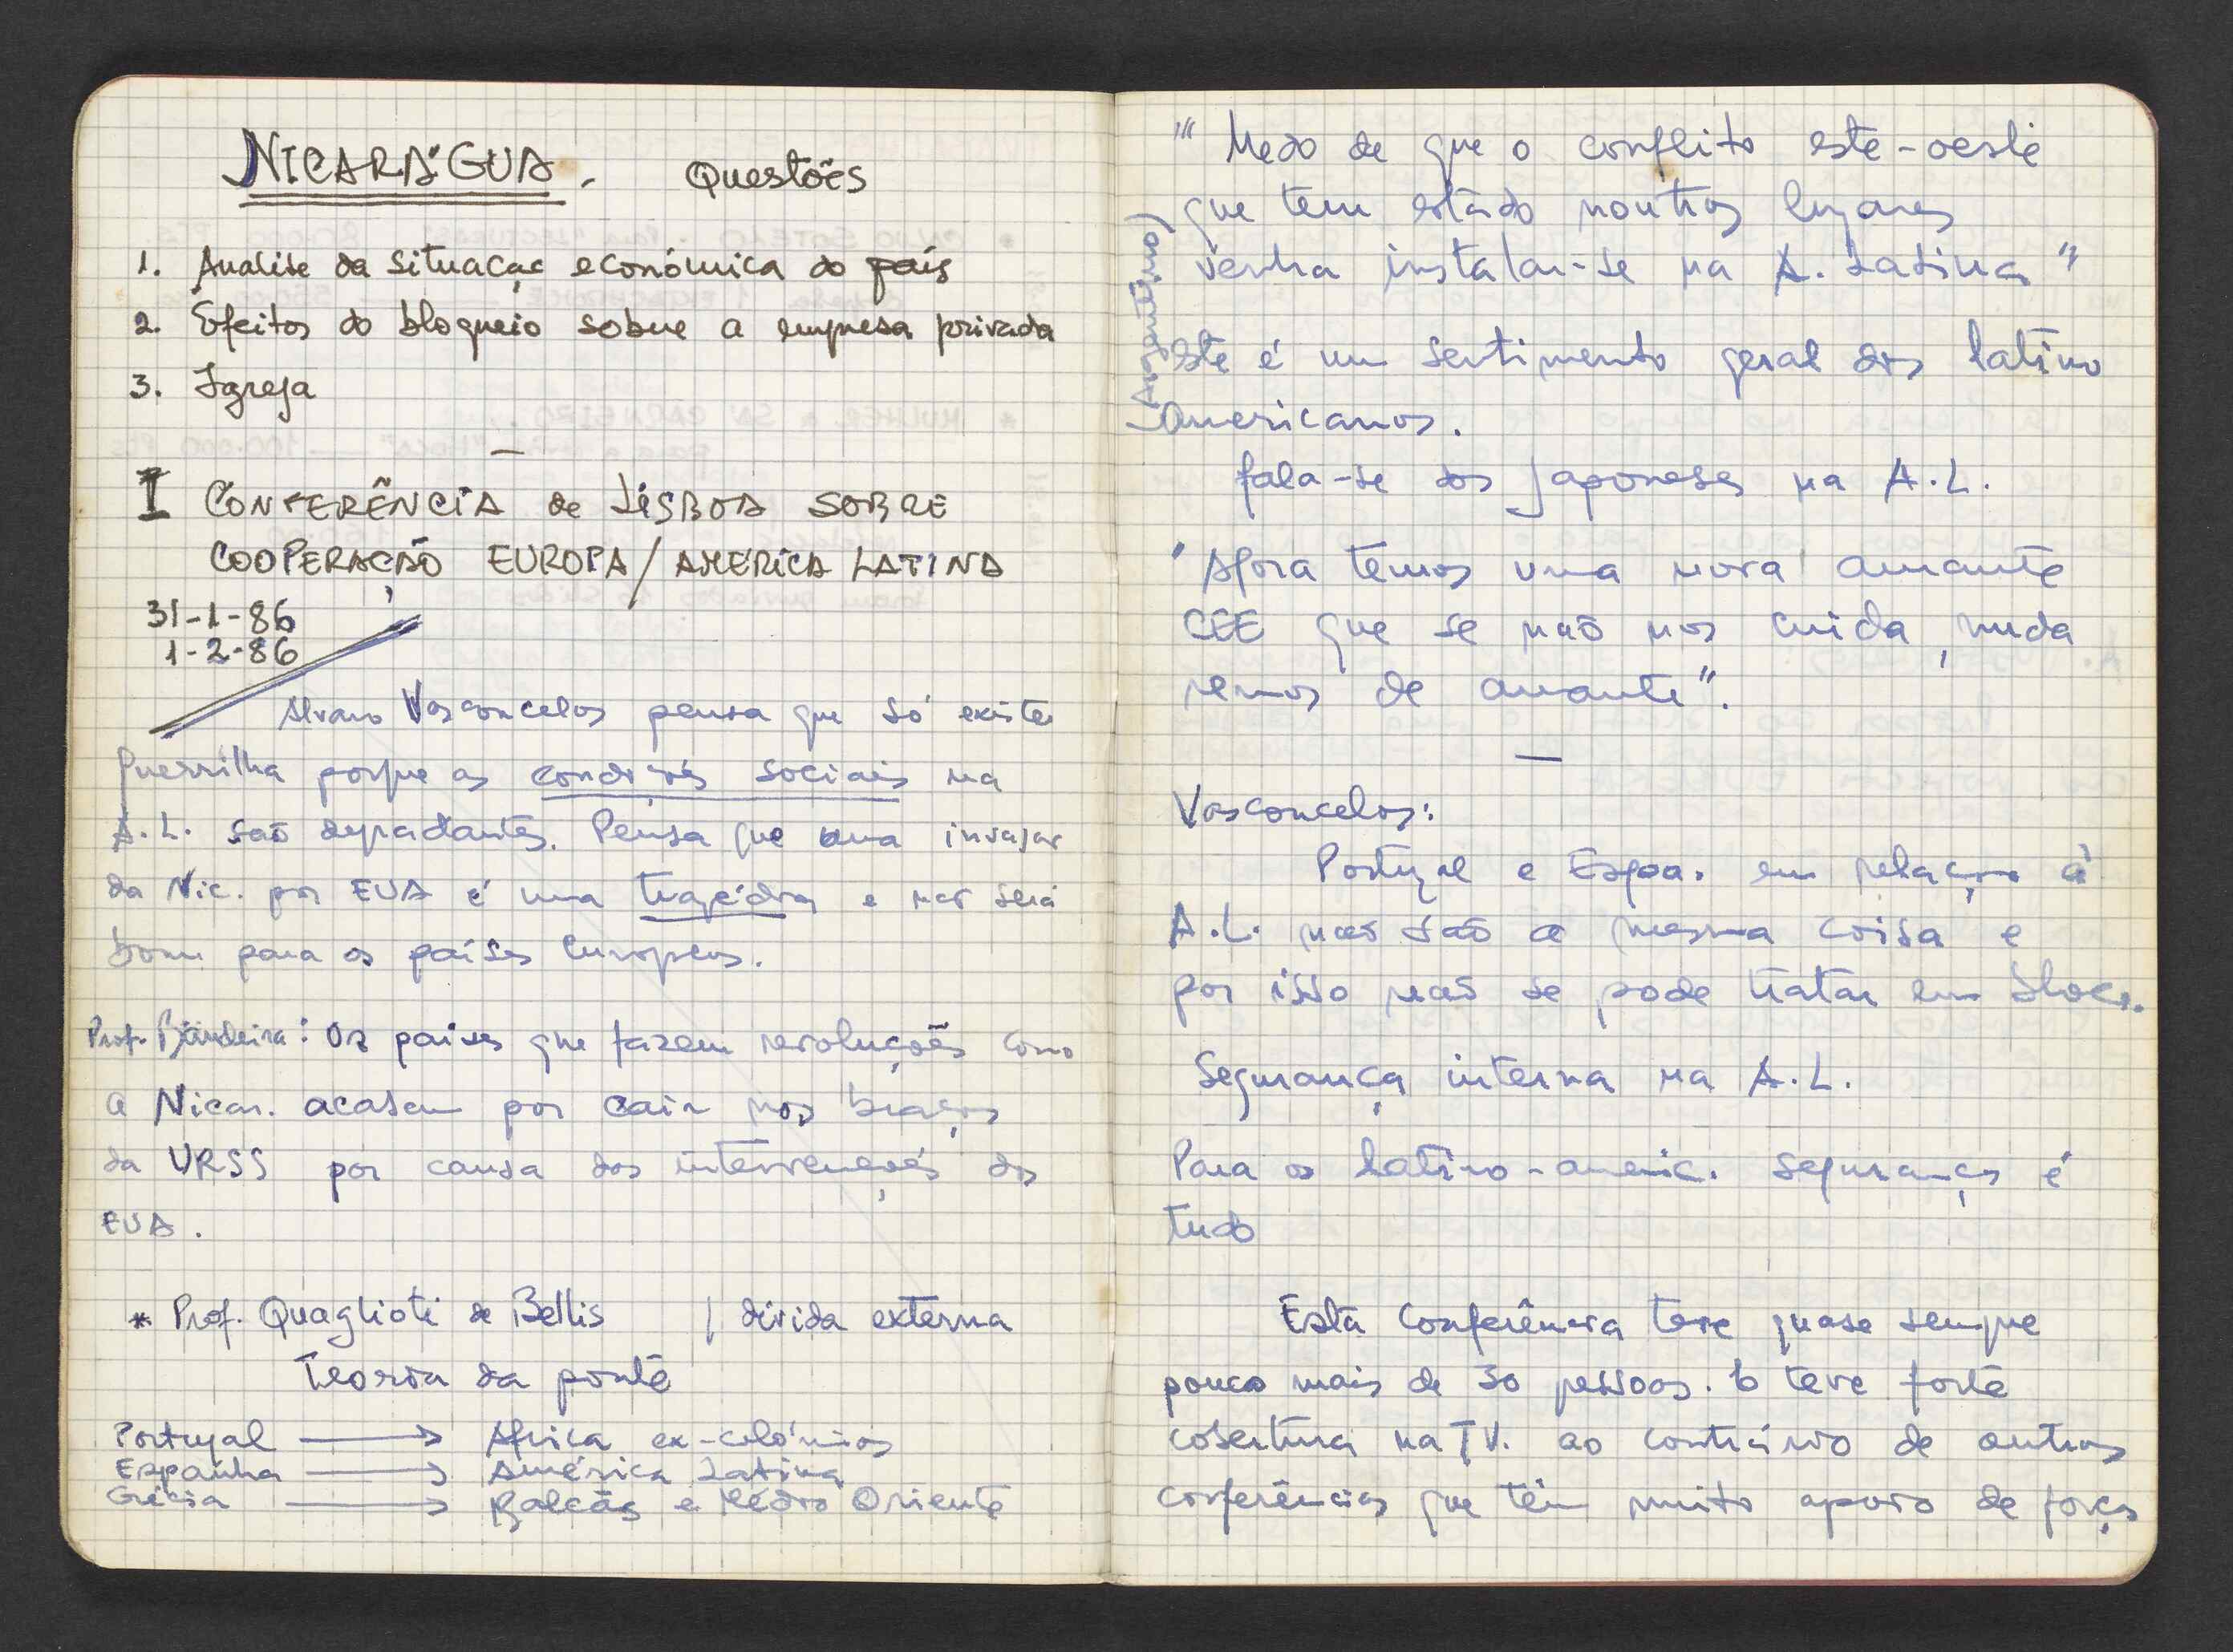 NICARÁGUA. Questões
1. Analise da situação económica do país
2. Efeitos do bloqueio sobre a empresa privada
3. Igreja
I CONFERÊNCIA de LISBOA SOBRE
COOPERAÇÃO EUROPA/AMÉRICA LATINA
31-1-86
1-2-86
Alvaro Vasconcelos pensa que só existe
guerrilha porque as condições sociais na
A.L. são degradantes. Pensa que uma invasão
da Nic. por EUA é uma tragédia e não será
bom para os países Europeus.
Prof. Bandeira: Os países que fazem revoluções como
a Nicar. acabam por cair nos braços
da URSS por causa das intervenções dos
EUA.
* Prof. Quaglioti de Bellis / dívida externa
Teoria da ponte
Portugal → Africa ex-colónias
Espanha → América Latina
Grécia → Balcãs e Médio Oriente
"Medo de que o conflito este-oeste
que tem estado noutros lugares
venha instalar-se na A. Latina"
(Argentino)
Este é um sentimento geral dos latino
americanos.
fala-se dos Japoneses na A.L.
"Agora temos uma nova amante
CEE que se não nos cuida, muda
remos de amante".
Vasconcelos:
Portugal e Espa. em relação à
A.L. não são a mesma coisa e
por isso não se pode tratar em bloco.
Segurança interna na A.L.
Para os latino-americ. segurança é
tudo
Esta Conferência teve quase sempre
pouco mais de 30 pessoas. E teve forte
cobertura na TV. ao contrário de outras
conferências que têm muito apoio de força